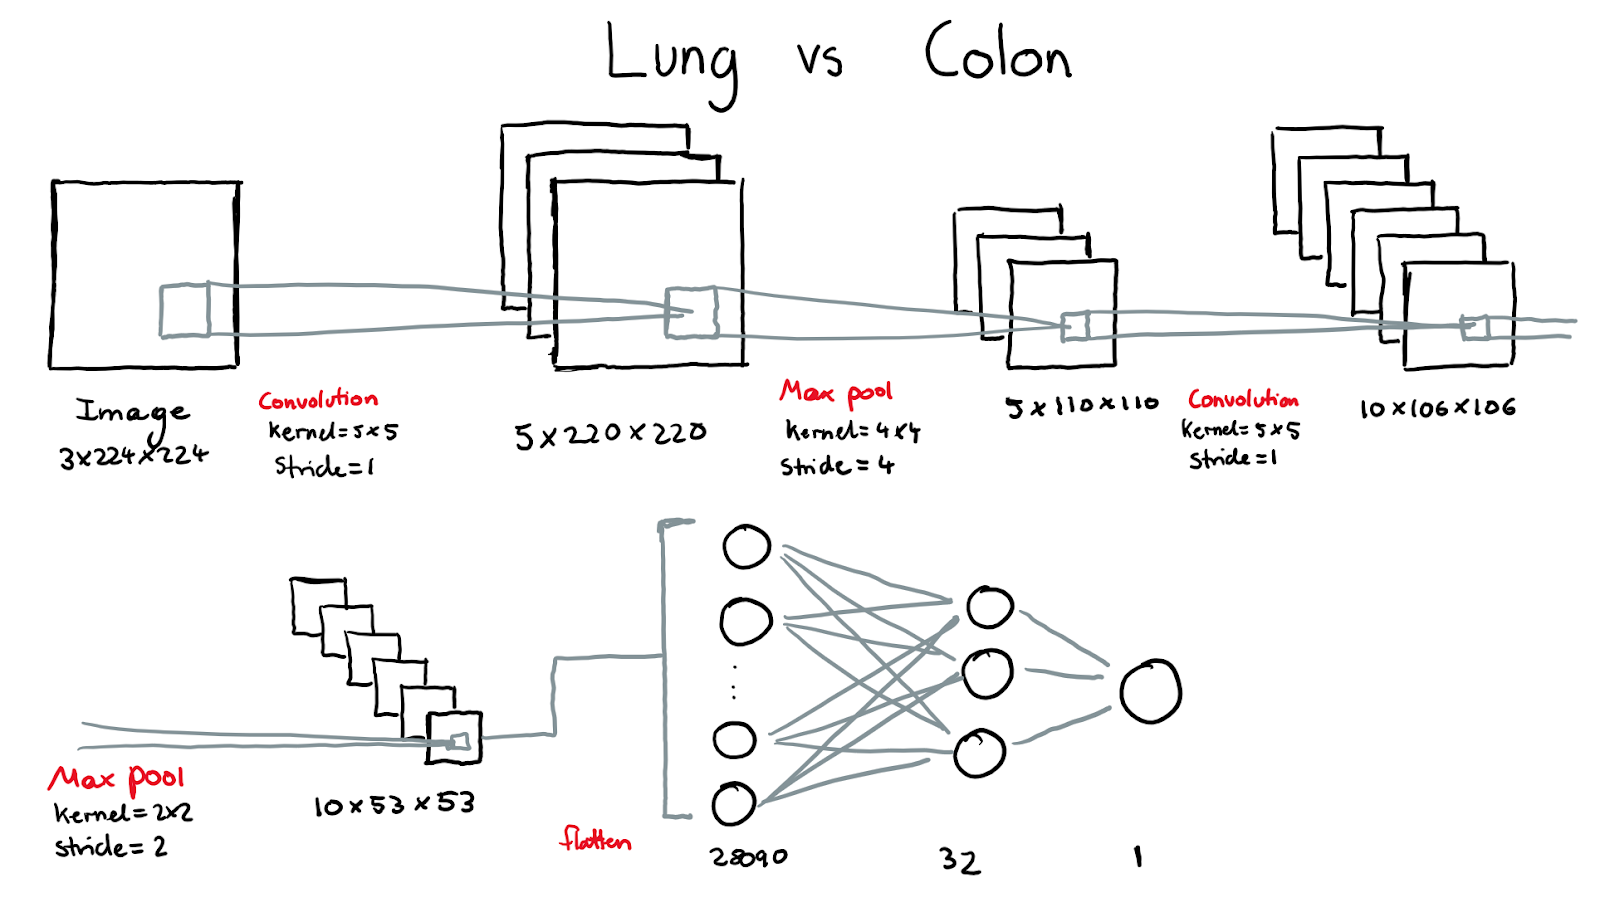 Lung vs Colon
Image
3x224x224
Convolution
Kernel=5x5
Stride=1
5x220x220
Max pool
Kernel=4x4
Stride=4
5x110x110
Convolution
Kernel=5x5
Stride=1
10x106x106
Max pool
Kernel=2x2
Stride=2
10x53x53
flatten
28090
32
1